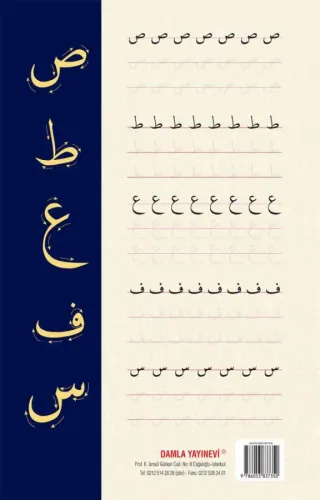 ص
ط
ع
ف
س
ص ص ص ص ص ص ص
ط ط ط ط ط ط ط ط
ع ع ع ع ع ع ع ع
ف ف ف ف ف ف ف ف
س س س س س س س
DAMLA YAYINEVİ ®
Prof. K. İsmail Gürkan Cad. No: 8 Cağaloğlu-İstanbul
Tel: 0212 514 28 28 (pbx) Faks: 0212 526 24 01